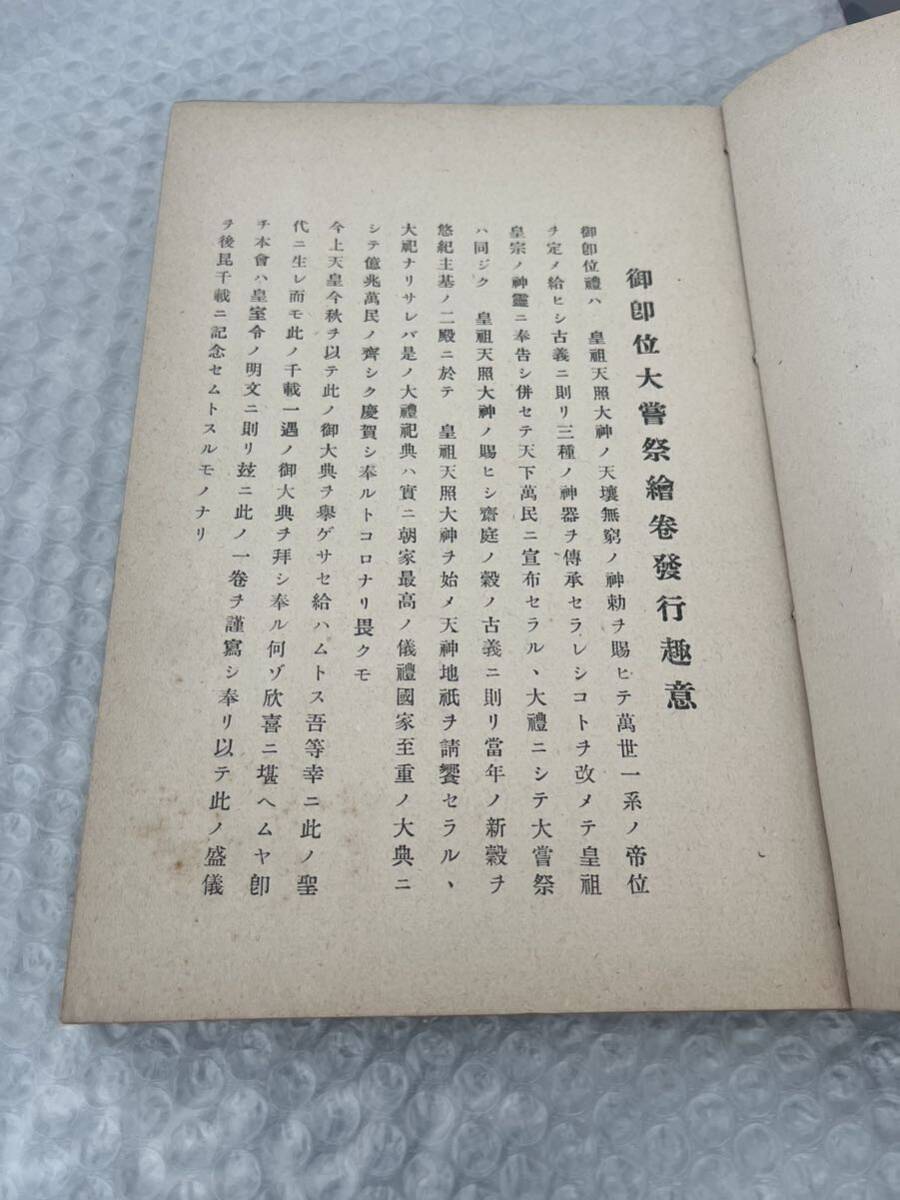 御卽位大嘗祭繪卷發行趣意
御卽位禮ハ　皇祖天照大神ノ天壤無窮ノ神勅ヲ賜ヒテ萬世一系ノ帝位
ヲ定メ給ヒシ古義ニ則リ三種ノ神器ヲ傳承セラレシコトヲ改メテ皇祖
皇宗ノ神靈ニ奉告シ併セテ天下萬民ニ宣布セラルヽ大禮ニシテ大嘗祭
ハ同ジク　皇祖天照大神ノ賜ヒシ齋庭ノ穀ノ古義ニ則リ當年ノ新穀ヲ
悠紀主基ノ二殿ニ於テ　皇祖天照大神ヲ始メ天神地祇ヲ請饗セラルヽ
大祀ナリサレバ是ノ大禮祀典ハ實ニ朝家最高ノ儀禮國家至重ノ大典ニ
シテ億兆萬民ノ齊シク慶賀シ奉ルトコロナリ畏クモ
今上天皇今秋ヲ以テ此ノ御大典ヲ擧ゲサセ給ハムトス吾等幸ニ此ノ聖
代ニ生レ而モ此ノ千載一遇ノ御大典ヲ拜シ奉ル何ゾ欣喜ニ堪ヘムヤ卽
チ本會ハ皇室令ノ明文ニ則リ玆ニ此ノ一卷ヲ謹寫シ奉リ以テ此ノ盛儀
ヲ後昆千載ニ記念セムトスルモノナリ